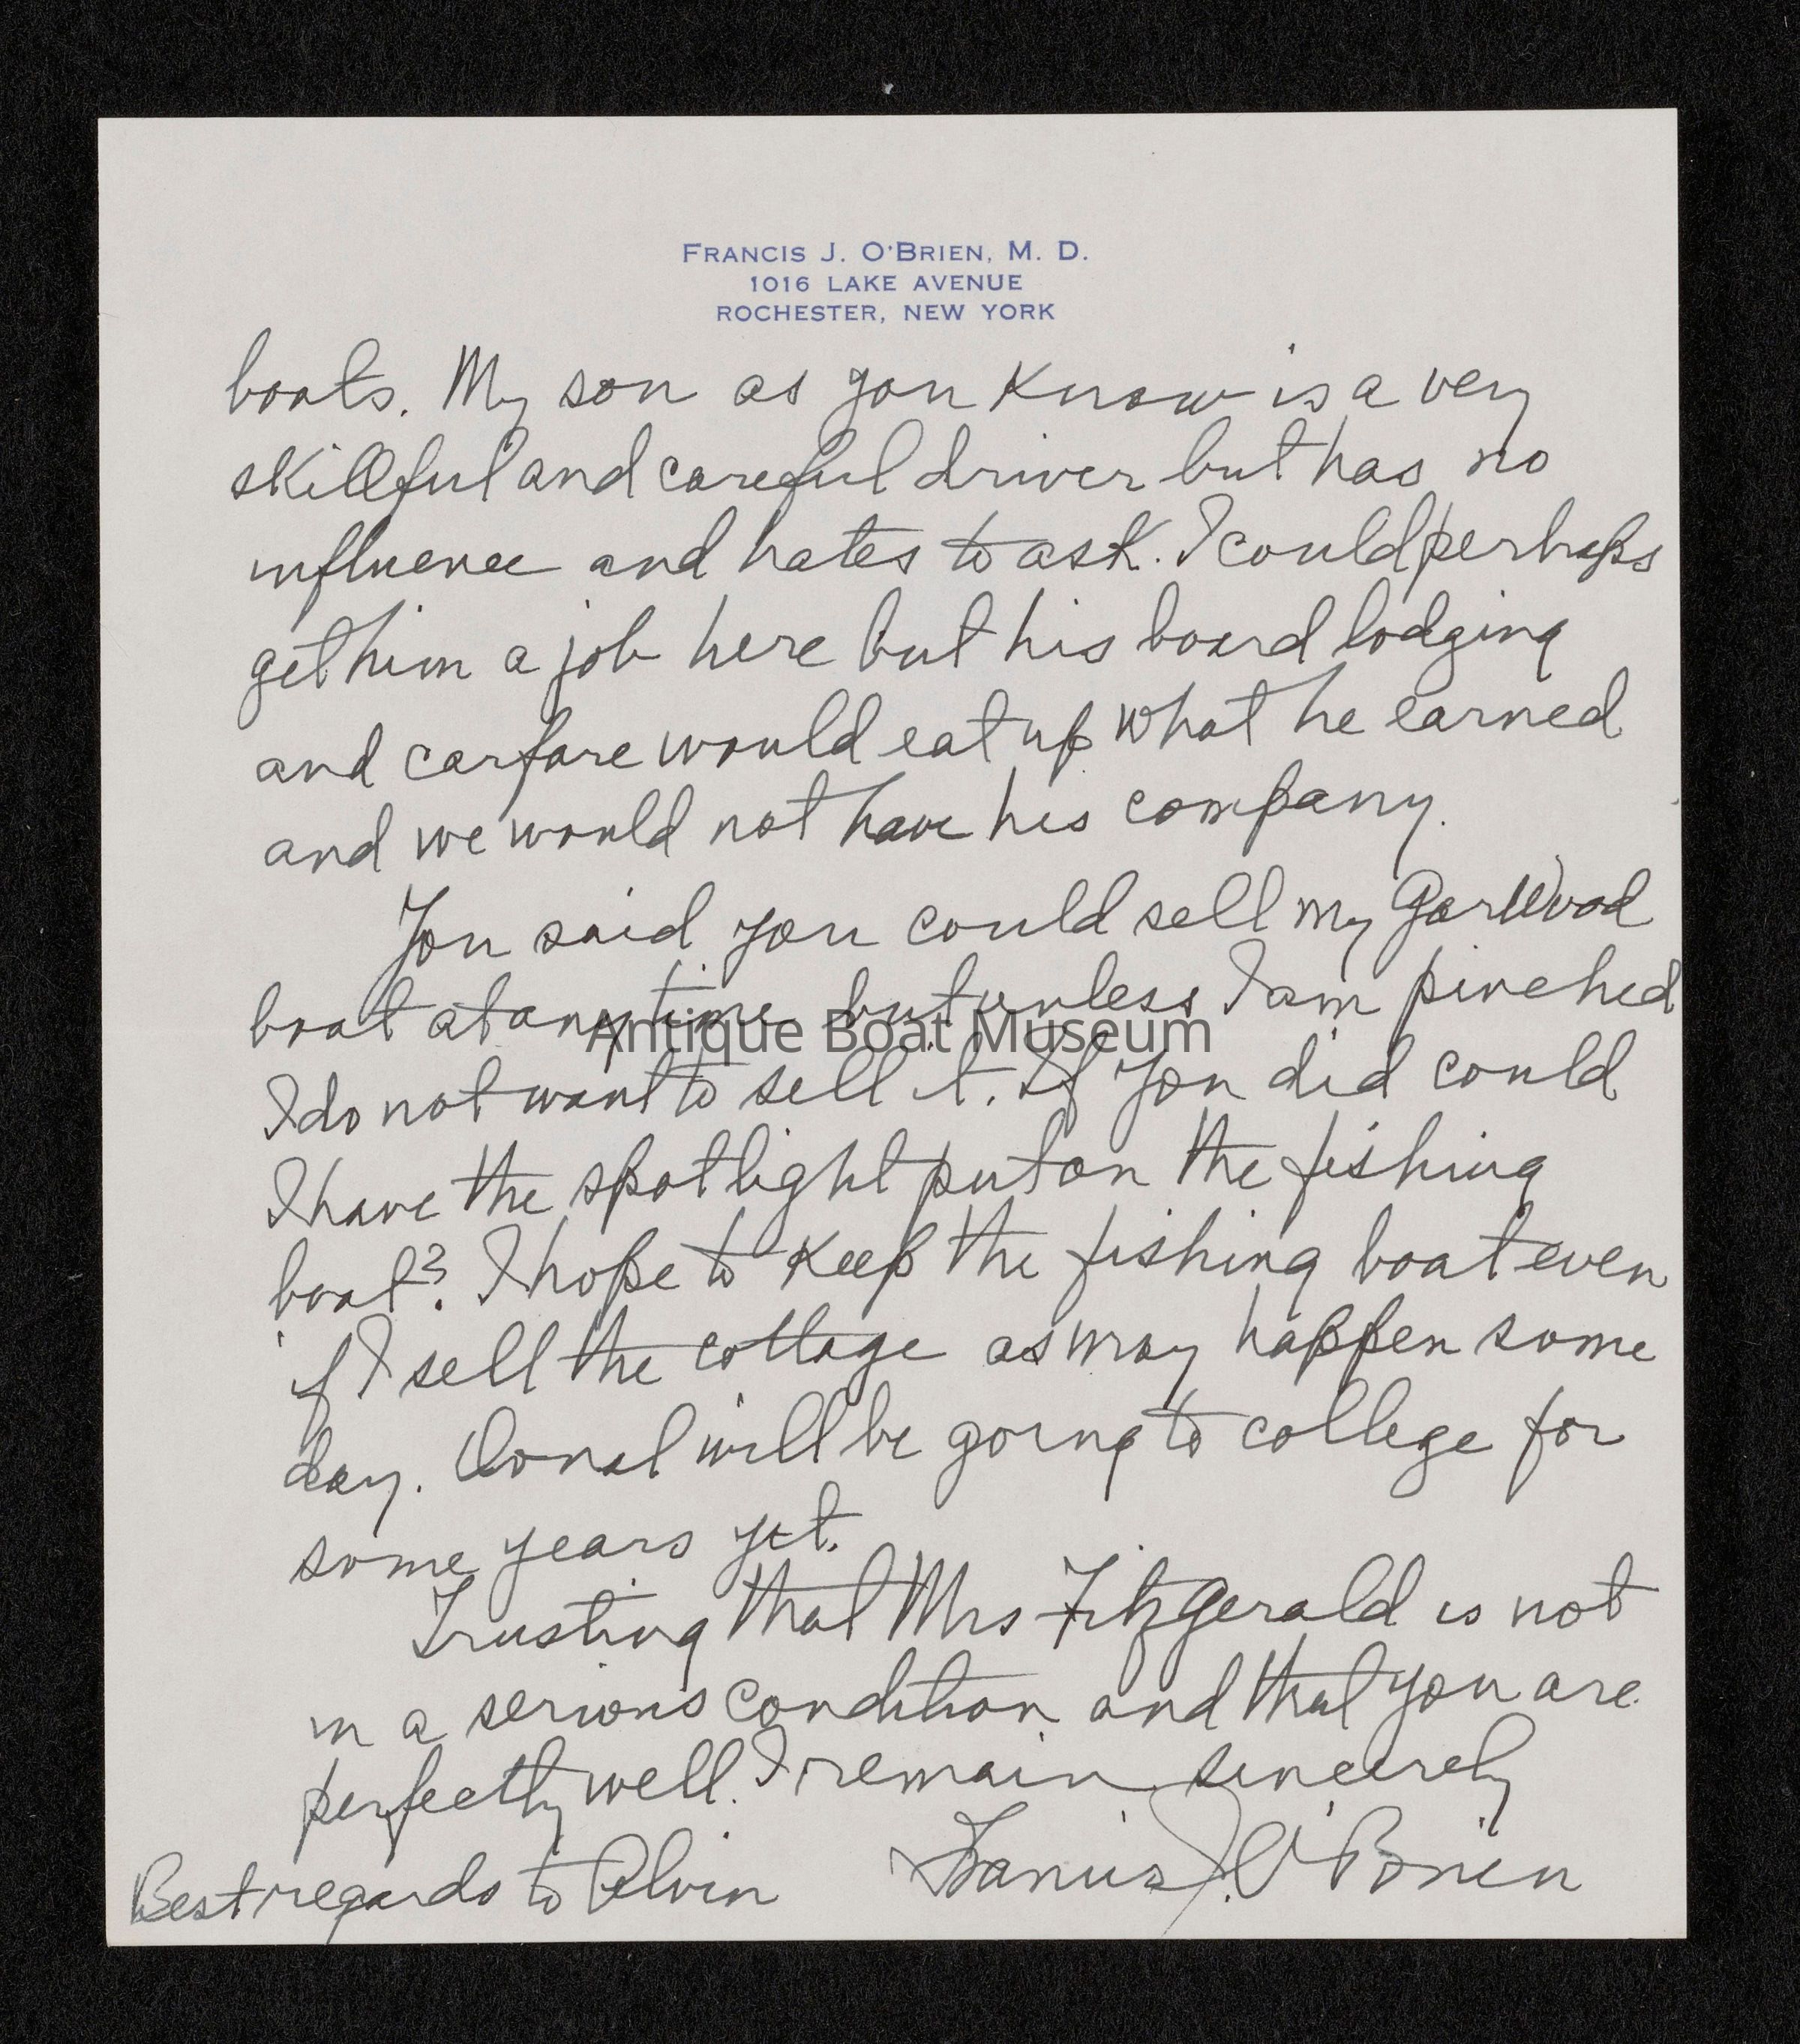 FRANCIS J. O'BRIEN, M. D.
1016 LAKE AVENUE
ROCHESTER, NEW YORK
boats. My son as you know is a very
skillful and careful driver but has no
influence and hates to ask. I could perhaps
get him a job here but his board lodging
and carfare would eat up what he earned
and we would not have his company.
You said you could sell my GarWood
boat at any time but unless I am pinched
Antique Boat Museum
I do not want to sell it. If you did could
I have the spotlight put on the fishing
boat? I hope to keep the fishing boat even
if I sell the cottage as may happen some
day. Donal will be going to college for
some years yet.
Trusting that Mrs FitzGerald is not
in a serious condition and that you are
perfectly well. I remain sincerely
Francis J. O'Brien
Best regards to Alvin